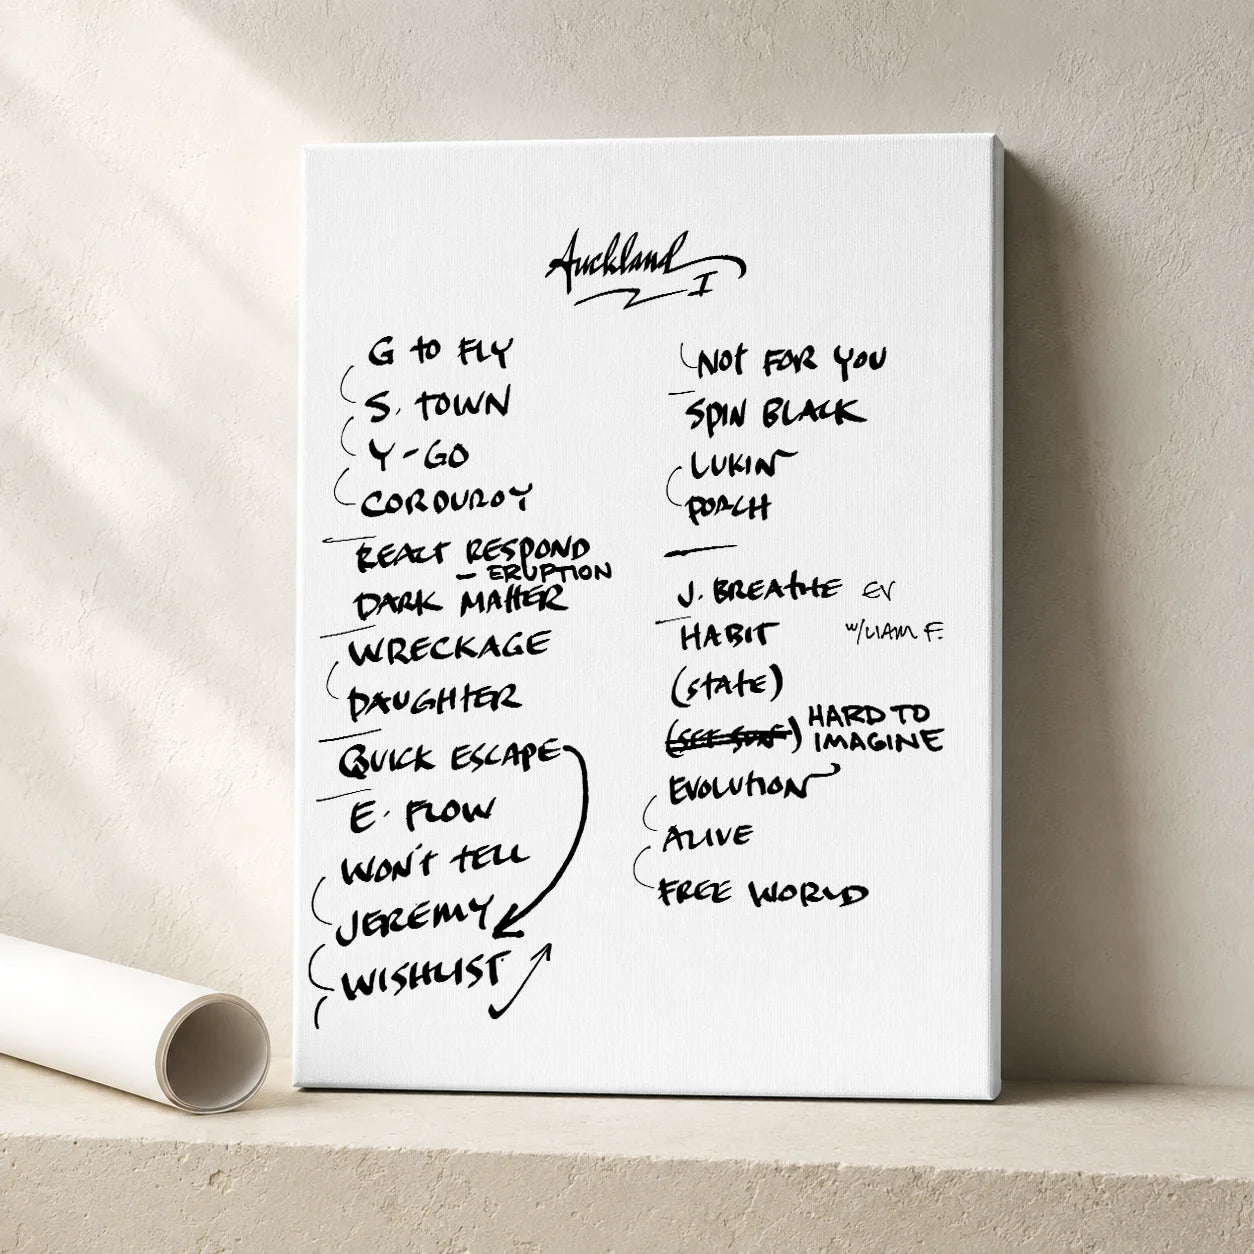 Auckland
I
G to FLY
S. TOWN
Y-GO
CORDUROY
REACT RESPOND
- ERUPTION
DARK MATTER
WRECKAGE
DAUGHTER
QUICK ESCAPE
E. FLOW
WON'T TELL
JEREMY
WISHLIST
NOT FOR YOU
SPIN BLACK
LUKIN
PORCH
J. BREATHE EV
HABIT W/LIAM F.
(STATE)
(SEE SURF) HARD TO
IMAGINE
EVOLUTION
ALIVE
FREE WORLD